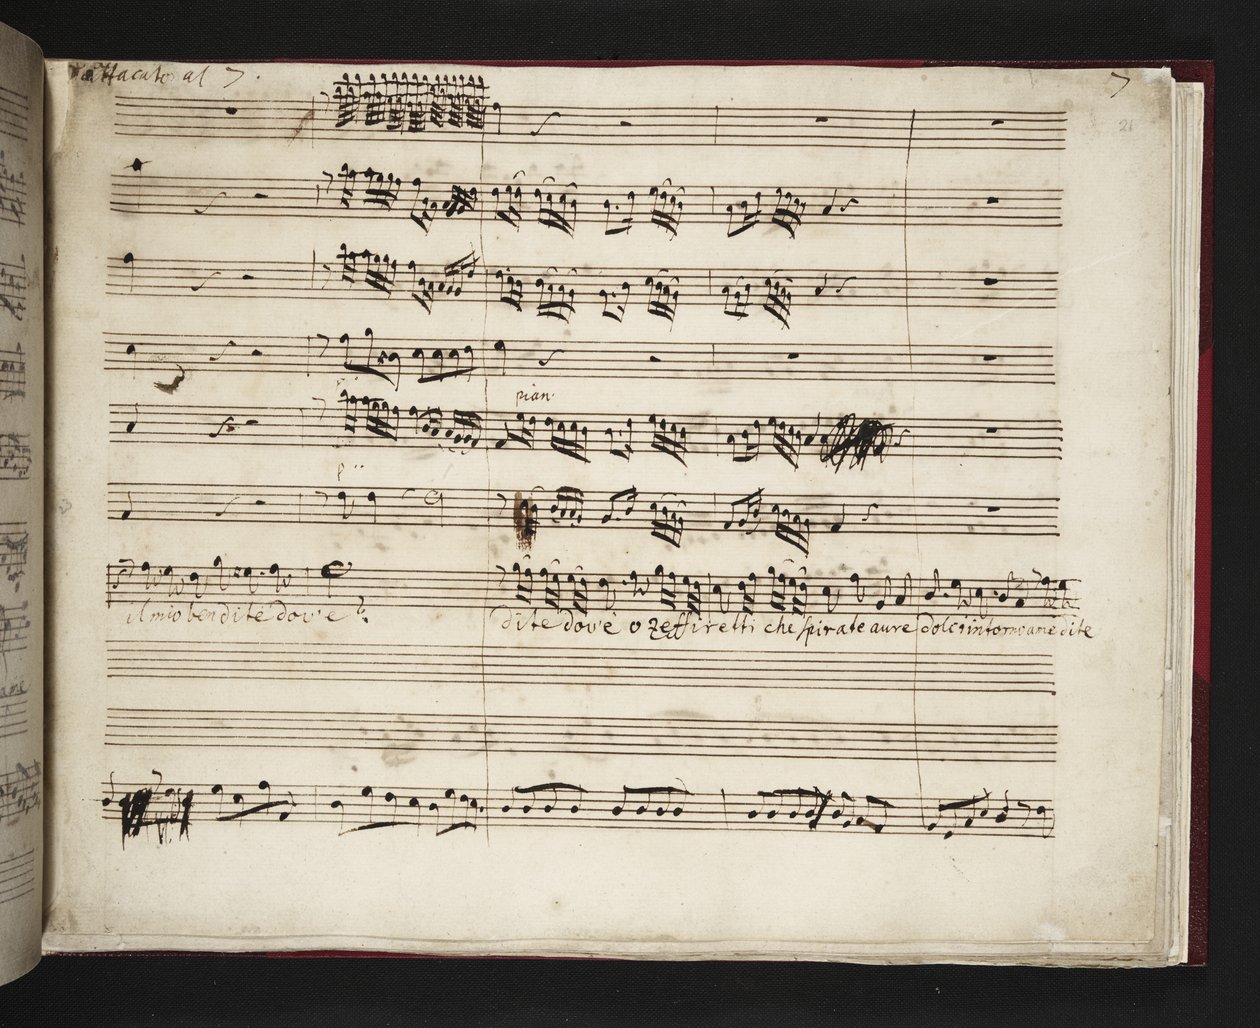 attacato al 7.
7
21
pian
p
il mio ben dite dov'e?
dite dov'e o zeffiretti che spirate aure dolci intorno a me dite